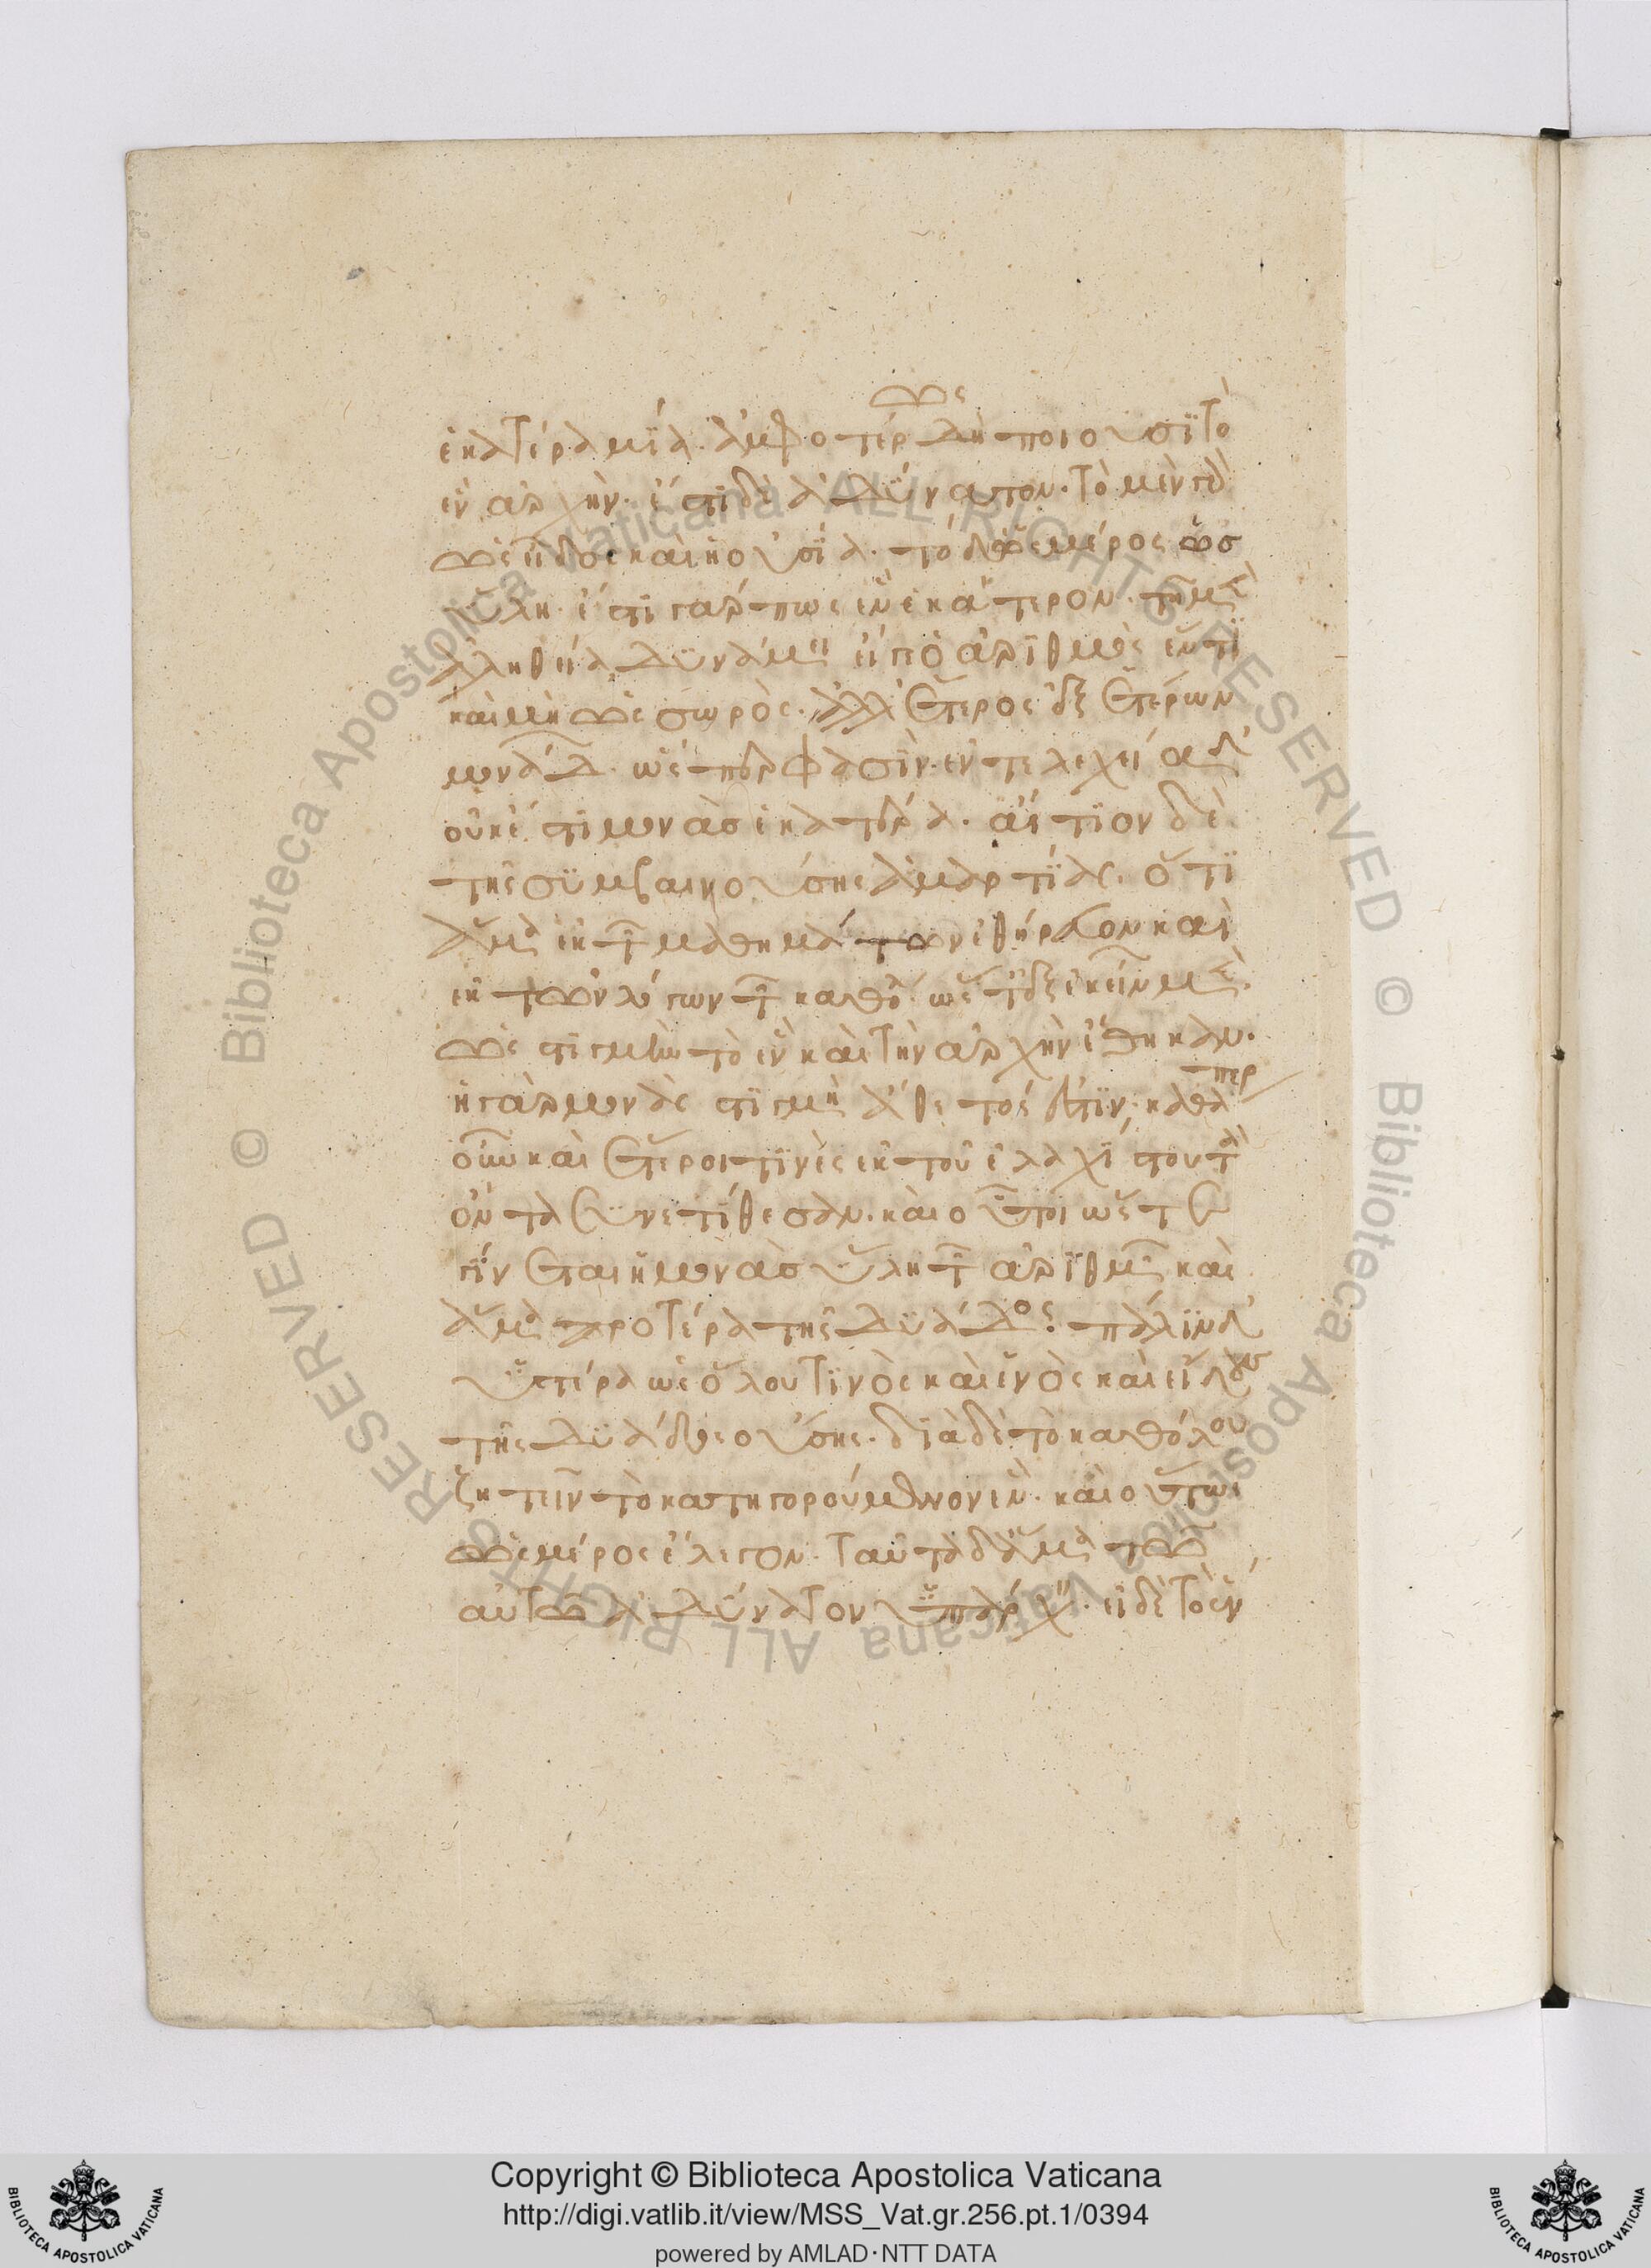 ἑκατέρα μία. ἀμφοτέρως δὴ ποιοῦσι τὸ
ἓν ἀρχήν. ἔστι δὲ ἀδύνατον. τὸ μὲν γὰρ
ὡς εἶδος καὶ ἡ οὐσία. τὸ δ' ὡς μέρος ὡσ
ὕλη. ἔστι γάρ πως ἓν ἑκάτερον. τῇ μὲν
ἀληθεία δυνάμει εἴ γε ὁ ἀριθμὸς ἕν τι
καὶ μὴ ὡς σωρὸς. ἀλλ' ἕτερος ἐξ ἑτέρων
μονάδων. ὥσπερ φασὶν. ἐντελεχεία δ'
οὐκ ἔστι μονὰσ ἑκατέρα. αἴτιον δὲ
τῆς συμβαινούσης ἁμαρτίας. ὅτι
ἅμα ἐκ τῶν μαθημάτων ἐθήρευον καὶ
ἐκ τῶν λόγων τῶν καθόλου. ὥστ' ἐξ ἐκείνων μὲν
ὡς στιγμὴν τὸ ἓν καὶ τὴν ἀρχὴν ἔθηκαν.
ἡ γὰρ μονὰς στιγμὴ ἄθετός ἐστιν. καθάπερ
οὖν καὶ ἕτεροι τινὲς ἐκ τοῦ ἐλαχίστου τὰ
ὄντα συνετίθεσαν. καὶ οὗτοι ὥστε
γίνεται ἡ μονὰσ ὕλη τῶν ἀριθμῶν καὶ
ἅμα προτέρα τῆς δυάδος. πάλιν δ'
ὑστέρα ὡς ὅλου τινὸς καὶ ἑνὸς καὶ εἴδους
τῆς δυάδος οὔσης. διὰ δὲ τὸ καθόλου
ζητεῖν τὸ κατηγορούμενον ἓν. καὶ οὕτως
ὡς μέρος ἔλεγον. ταῦτα δ' ἅμα τῶ
αὐτῶ ἀδύνατον ὑπάρχειν. εἰ δὲ τὸ ἓν
Copyright © Biblioteca Apostolica Vaticana
http://digi.vatlib.it/view/MSS_Vat.gr.256.pt.1/0394
powered by AMLAD·NTT DATA